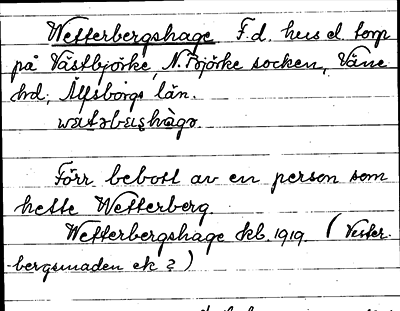 Wetterbergshage F.d. hus el. torp
på Västbjörke, N. Björke socken, Väne
hd, Älfsborgs län.
Förr bebott av en person som
hette Wetterberg.
Wetterbergshage kbl. 1919. (Vester-
bergsmaden ek?)